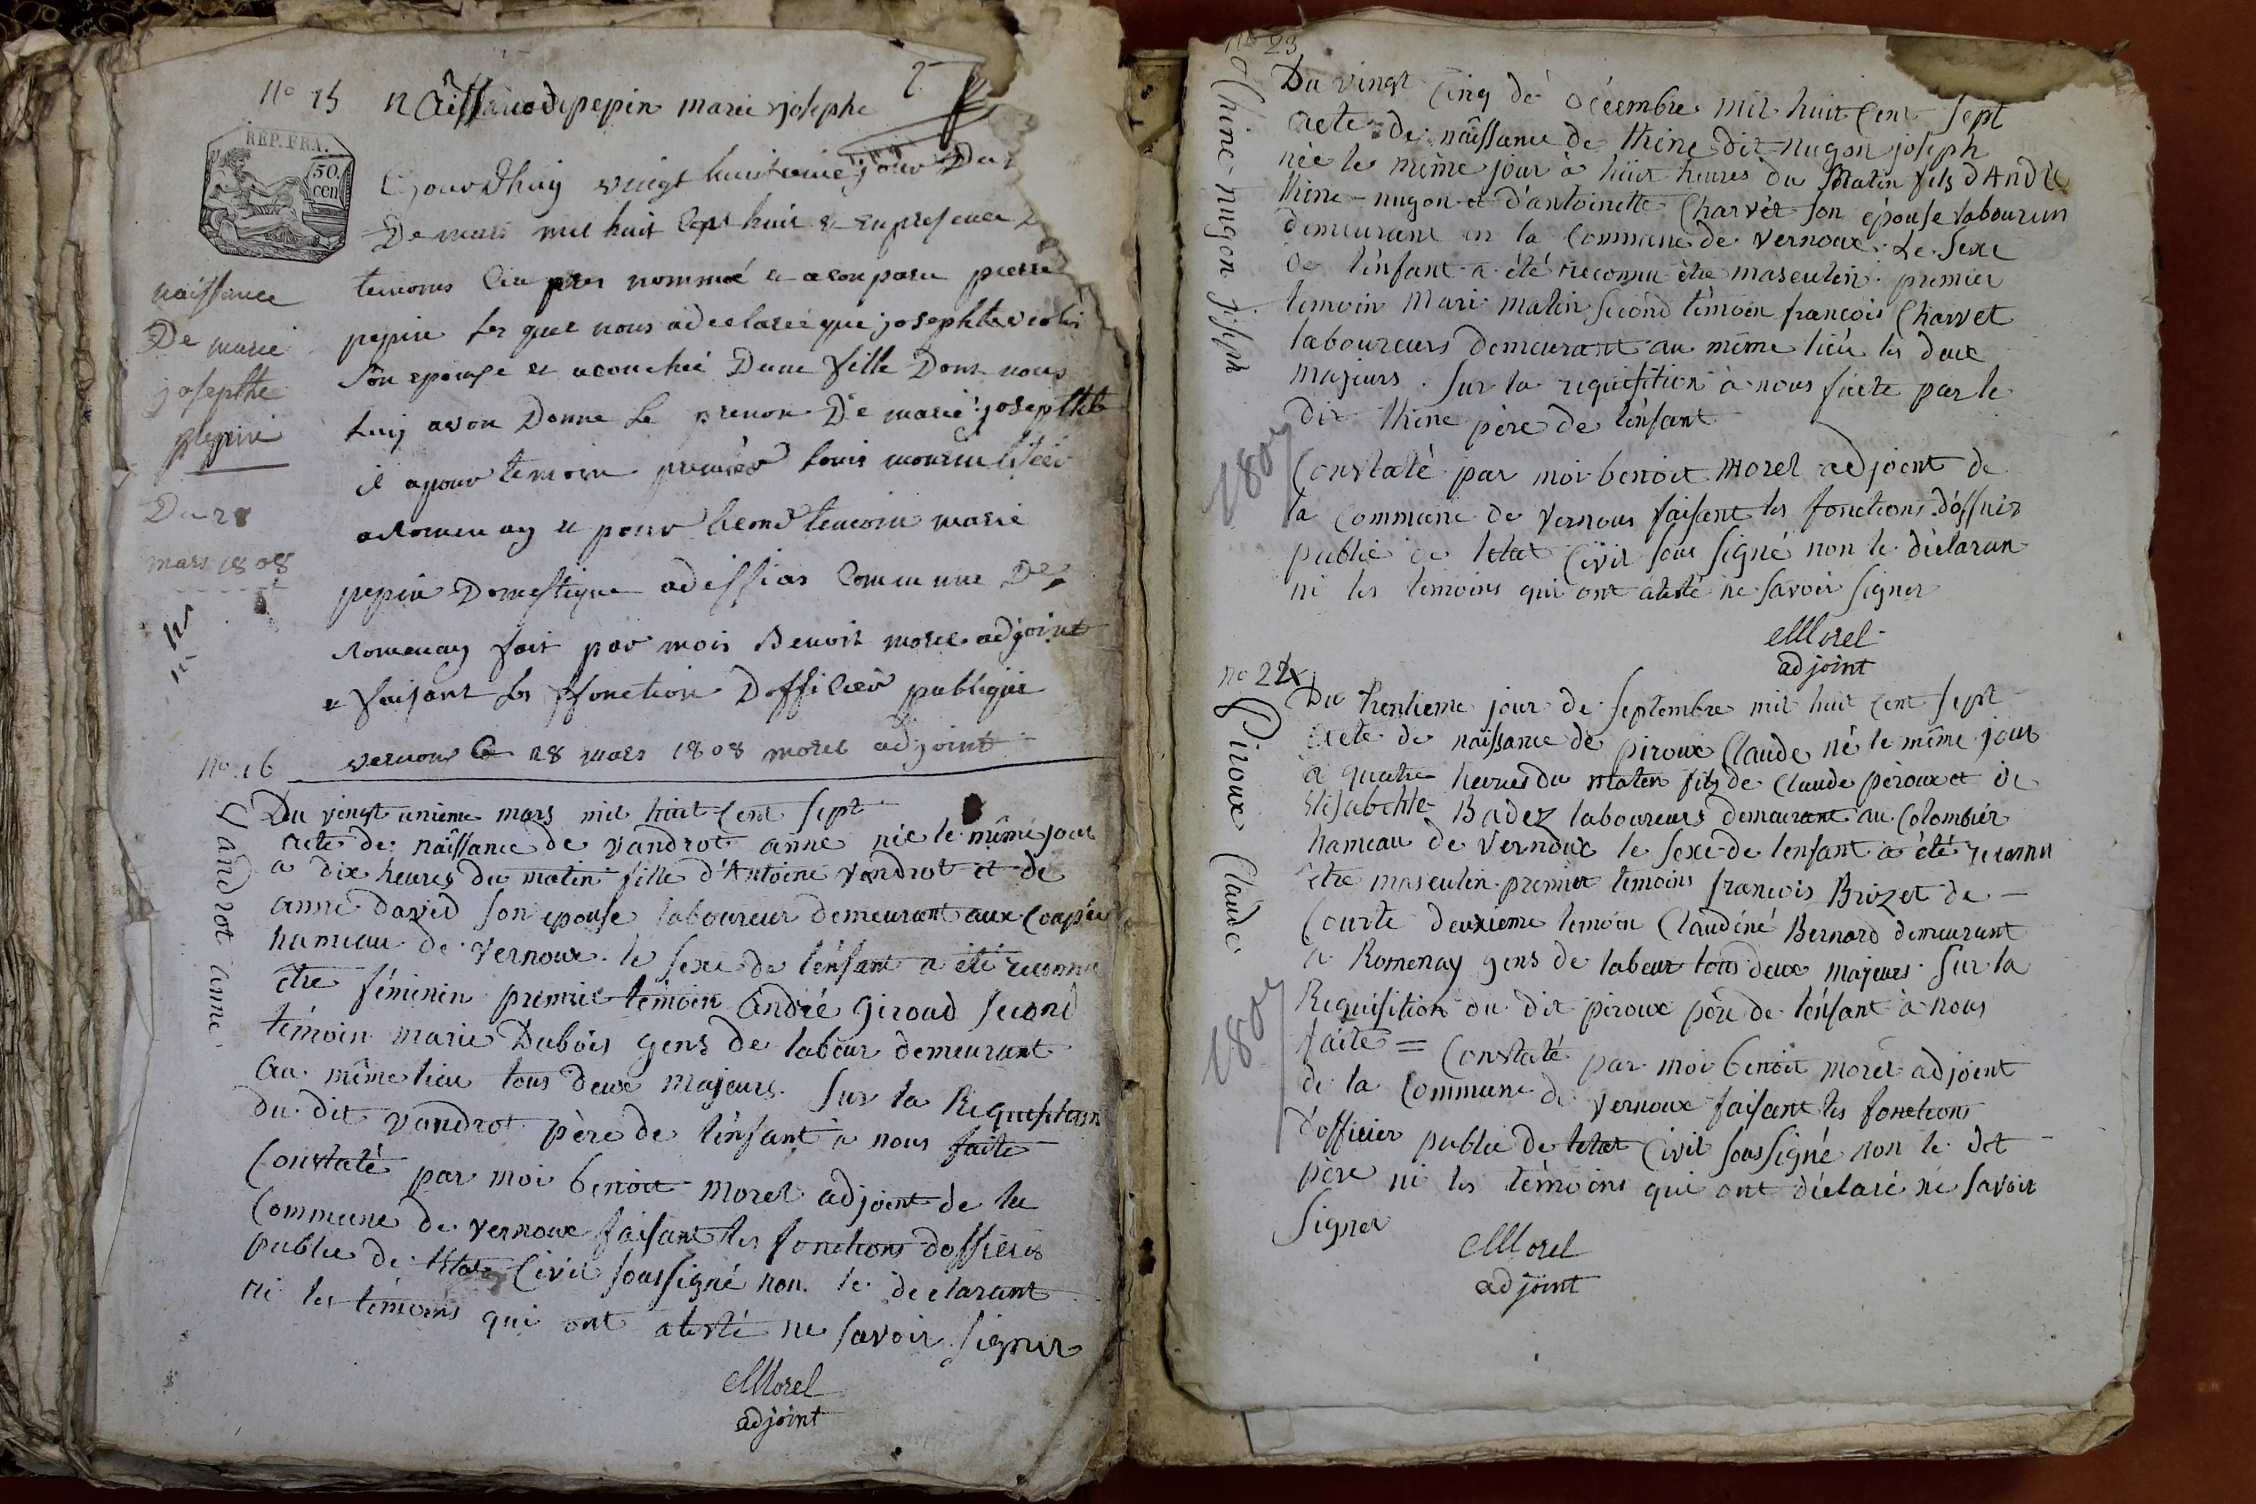 No 15 naissance de pepin marie josephe
REP. FRA.
50.
cen
jourdhuy vingt huitieme jour Du
De mars mil huit cent huit et en presence
temoins cia pres nommé a comparu pierre
pepin les quel nous adeclareé que josephte
son epouse et acouchée Dune fille Dont nous
luy avon Donne le prenon De marie josephte
il apour temoin premier louis
a Romenay et pour second temoin marie
pepin Domestique commune De
Romenay fait par mois Benoit morel adjoint
et faisant les ffonction Dofficier publique
vernoux le 28 mars 1808 morel adjoint
naissance
De marie
josephte
pepin
Du 28
mars 1808
No 16
Vandrot anne
Du vingt unieme mars mil huit cent sept
acte de naissance de vandrot anne née le même jour
a dix heures du matin fille d'Antoine vandrot et de
anne david son epouse laboureur demeurant aux
hameau de vernoux. le sexe de l'enfant a été reconnu
être féminin premier témoin andré giroud second
témoin marie Dubois gens de labeur demeurant
au même lieu tous deux majeurs. Sur la Requisition
du dit vandrot père de l'enfant à nous faite
Constaté par moi benoit morel adjoint de la
commune de vernoux faisant les fonctions dofficier
public de letat civil soussigné non le declarant
ni les témoins qui ont atesté ne savoir signer
Morel
adjoint
No 23
thine-nugon joseph
Du vingt cinq de décembre mil huit cent sept
acte de naissance de thine dit nugon joseph
née le même jour à huit heures du matin fils d'André
thine-nugon et d'antoinette Charvet son épouse laboureur
demeurant en la commune de vernoux. Le sexe
de l'enfant a été reconnu être masculin. premier
temoin mari matin second témoin françois Charvet
laboureurs demeurant au même lieu les deux
majeurs. Sur la requisition à nous faite par le
dit thine père de l'enfant
1807
Constaté par moi benoit morel adjoint de
la commune de vernoux faisant les fonctions d'officier
public de letat civil sous signé non le déclarant
ni les temoins qui ont atesté ne savoir signer
Morel
adjoint
no 22
Piroux Claude
Du trentieme jour de septembre mil huit cent sept
acte de naissance de piroux Claude né le même jour
à quatre heures du matin fils de claude piroux et de
Badez laboureurs demeurant au Colombier
hameau de vernoux le sexe de lenfant a été reconnu
être masculin premier temoins françois Brizet de
Courte deuxieme temoin Claudine Bernard demeurant
a Romenay gens de labeur tous deux majeurs. Sur la
Requisition du dit piroux père de l'enfant à nous
faite = Constaté par moi benoit morel adjoint
de la commune de vernoux faisant les fonctions
d'officier public de letat civil soussigné non le dit
père ni les témoins qui ont déclaré ne savoir
signer
1807
Morel
adjoint